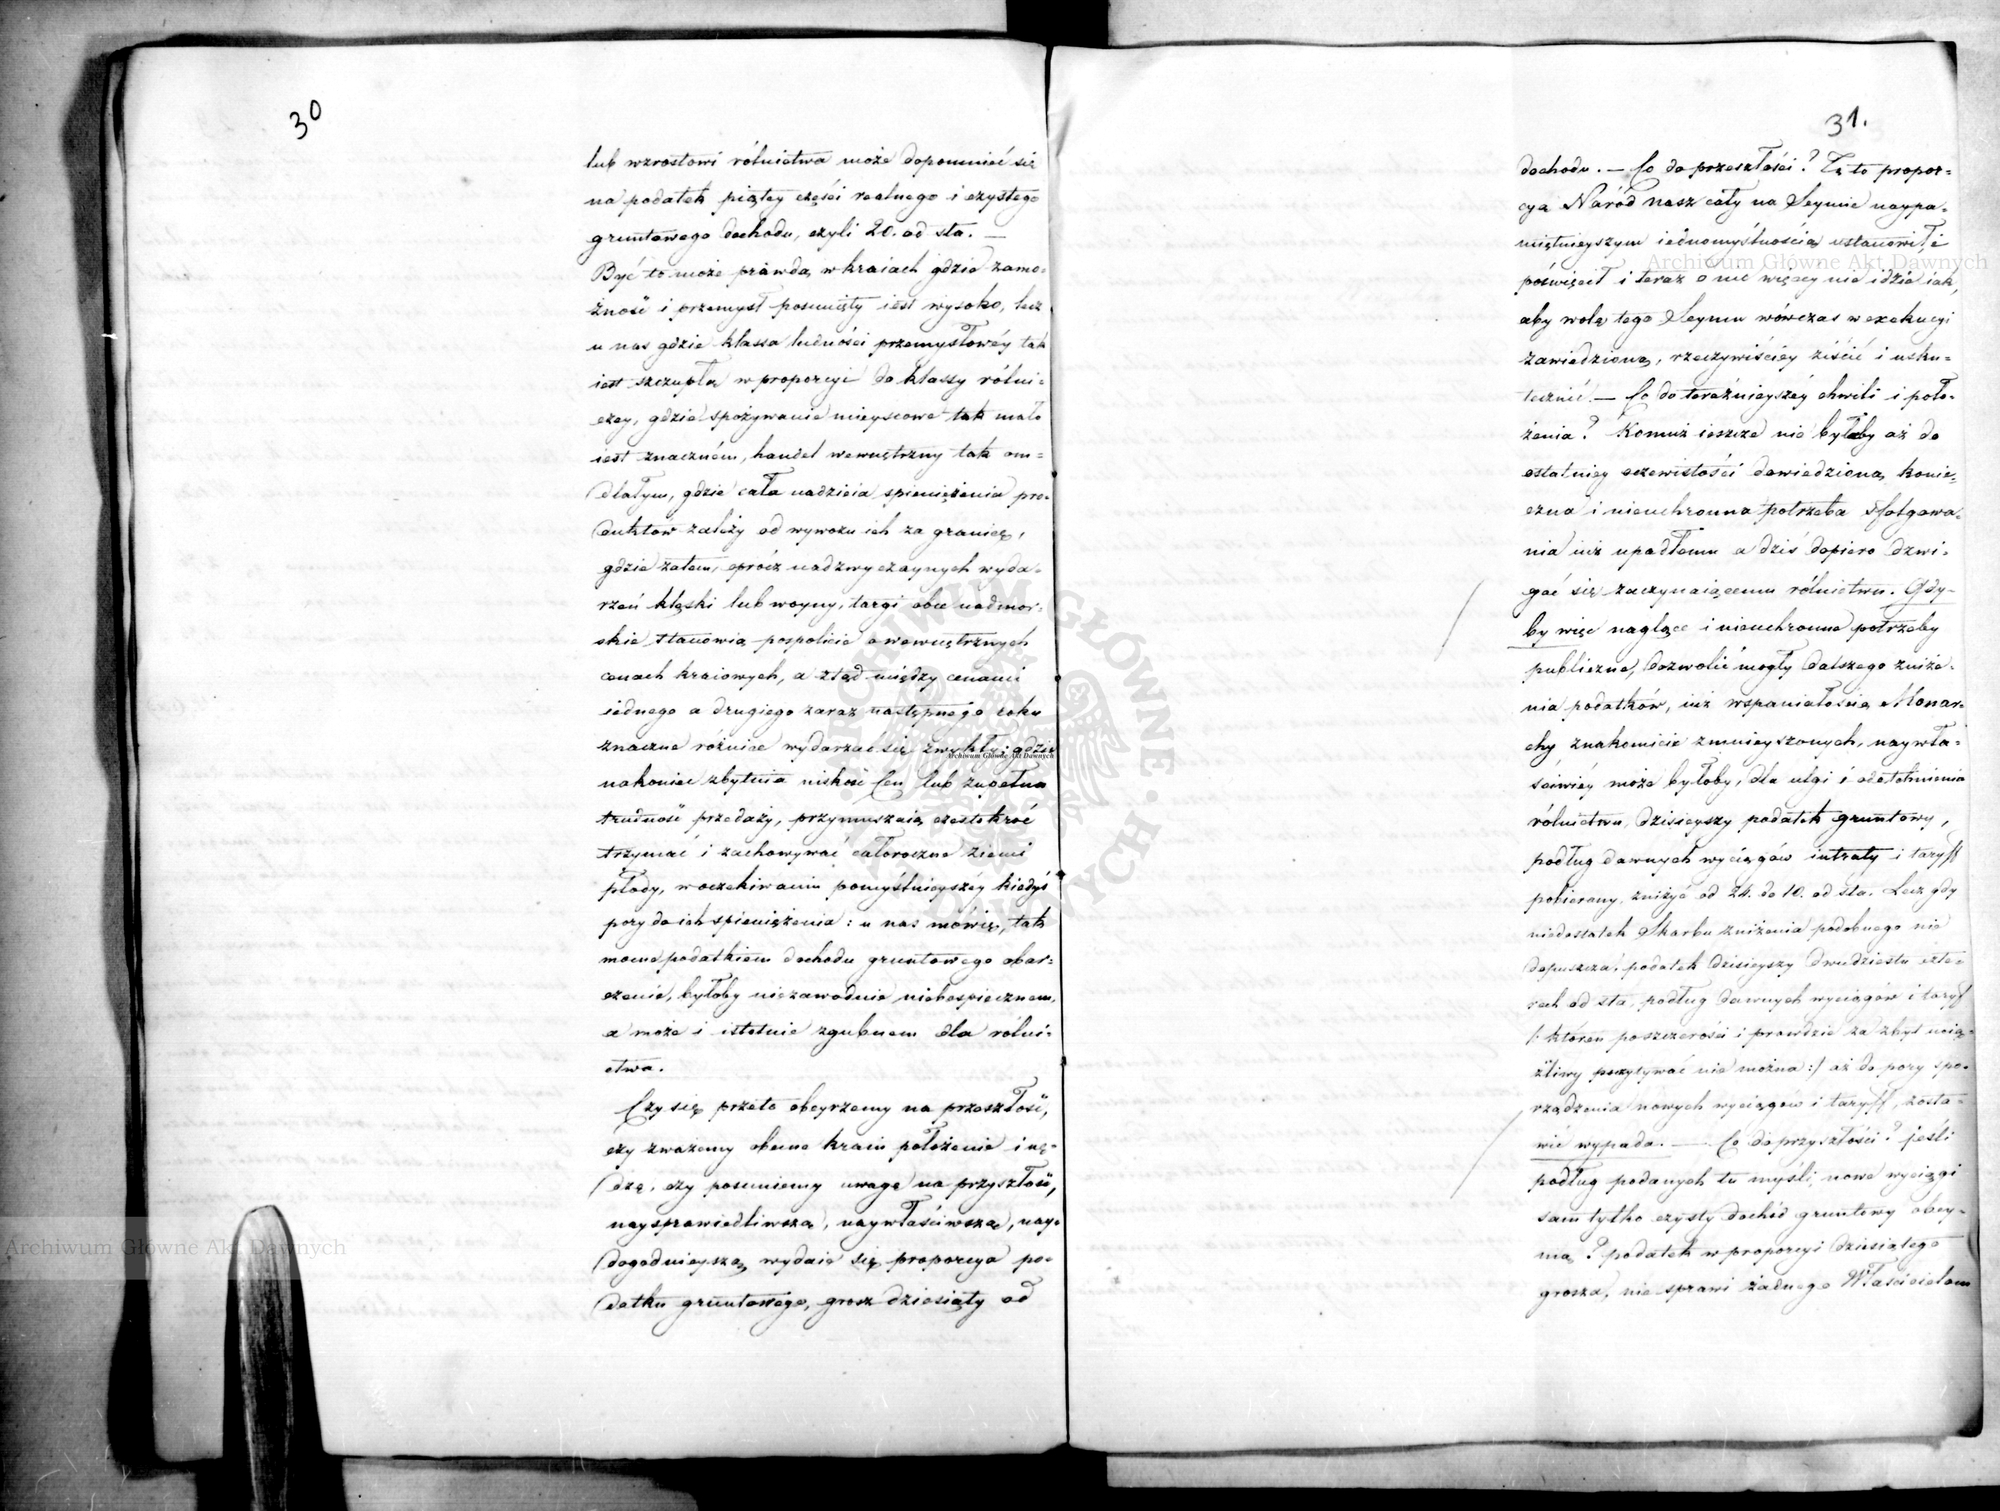 30
lub wzrostowi rólnictwa może dopomnieć się
na podatek piątey części realnego i czystego
gruntowego dochodu, czyli 20. od sta. —
Być to może prawdą w kraiach gdzie zamo-
żność i przemysł posunięty iest wysoko, lecz
u nas gdzie klassa ludności przemysłowéy tak
iest szczupła w proporcyi do klassy rólni-
czey, gdzie spożywanie mieyscowe tak mało
iest znaczném, handel wewnętrzny tak om-
dlałym, gdzie cała nadzieia spieniężenia pro-
duktow zależy od wywozu ich za granicę,
gdzie zatem, oprócz nadzwyczaynych wyda-
rzeń klęski lub woyny, targi obce nadmor-
skie stanowią pospolicie o wewnętrznych
cenach kraiowych, a ztąd między cenami
iednego a drugiego zaraz następnego roku
znaczne różnice wydarzać się zwykły; gdzie
nakoniec zbytnia niskość Cen lub zupełna
trudność przedaży, przymuszaią częstokroć
trzymać i zachowywać całoroczne ziemi
płody, w oczekiwaniu pomyślnieyszéy kiedyś
pory do ich spieniężenia: u nas mówię, tak
mocne podatkiem dochodu gruntowego obar-
czenie, byłoby niezawodnie niebespiecznem,
a może i istotnie zgubnem dla rólni-
ctwa.
Czy się przeto obeyrzemy na przeszłość,
czy zważemy obecne kraiu położenie i nę-
dzę, czy posuniemy uwagę na przyszłość,
naysprawiedliwszą, naywłaściwszą, nay-
dogodnieyszą wydaie się proporcya po-
datku gruntowego, grosz dziesiąty od
31.
dochodu. — Co do przeszłości? Tę to propor-
cyą Naród nasz cały na Seymie naypa-
miętnieyszym iednomyślnością ustanowił i
poświęcił i teraz o nic więcey nie idzie iak,
aby wolę tego Seymu wówczas w exekucyi
zawiedzioną, rzeczywiściey ziścić i usku-
tecznić. — Co do teraźnieyszéy chwili i poło-
żenia? Komuż ieszcze nie byłaby aż do
ostatniey oczewistości dowiedzioną konie-
czna i nieuchronna potrzeba sfolgowa-
nia iuż upadłemu a dziś dopiero dzwi-
gać się zaczynaiącemu rólnictwu. Gdy-
by więc naglące i nieuchronne potrzeby
publiczne, dozwolić mogły dalszego zniże-
nia podatków, iuż wspaniałością Monar-
chy znakomicie zmnieyszonych, naywła-
ściwiéy może byłoby, dla ulgi i odetchnienia
rólnictwu, dzisieyszy podatek gruntowy,
podług dawnych wyciągów intraty i taryff
pobierany, zniżyć od 24. do 10. od sta. Lecz gdy
niedostatek Skarbu zniżenia podobnego nie
dopuszcza, podatek dzisieyszy dwudziestu czte-
rech od sta, podług dawnych wyciągów i taryff
/: ktoren poszczerości i prawdzie za zbyt uciąż-
żliwy poczytywać nie można :/ aż do pory spo-
rządzenia nowych wyciągów i taryff, zosta-
wić wypada. — Co do przyszłości? jeśli
podług podanych tu myśli, nowe wyciągi
sam tylko czysty dochód gruntowy obey-
mą? podatek w proporcyi dziesiątego
grosza, nie sprawi żadnego Właścicielom
Archiwum Główne Akt Dawnych
Archiwum Główne Akt Dawnych
Archiwum Główne Akt Dawnych
ARCHIWUM GŁÓWNE AKT DAWNYCH